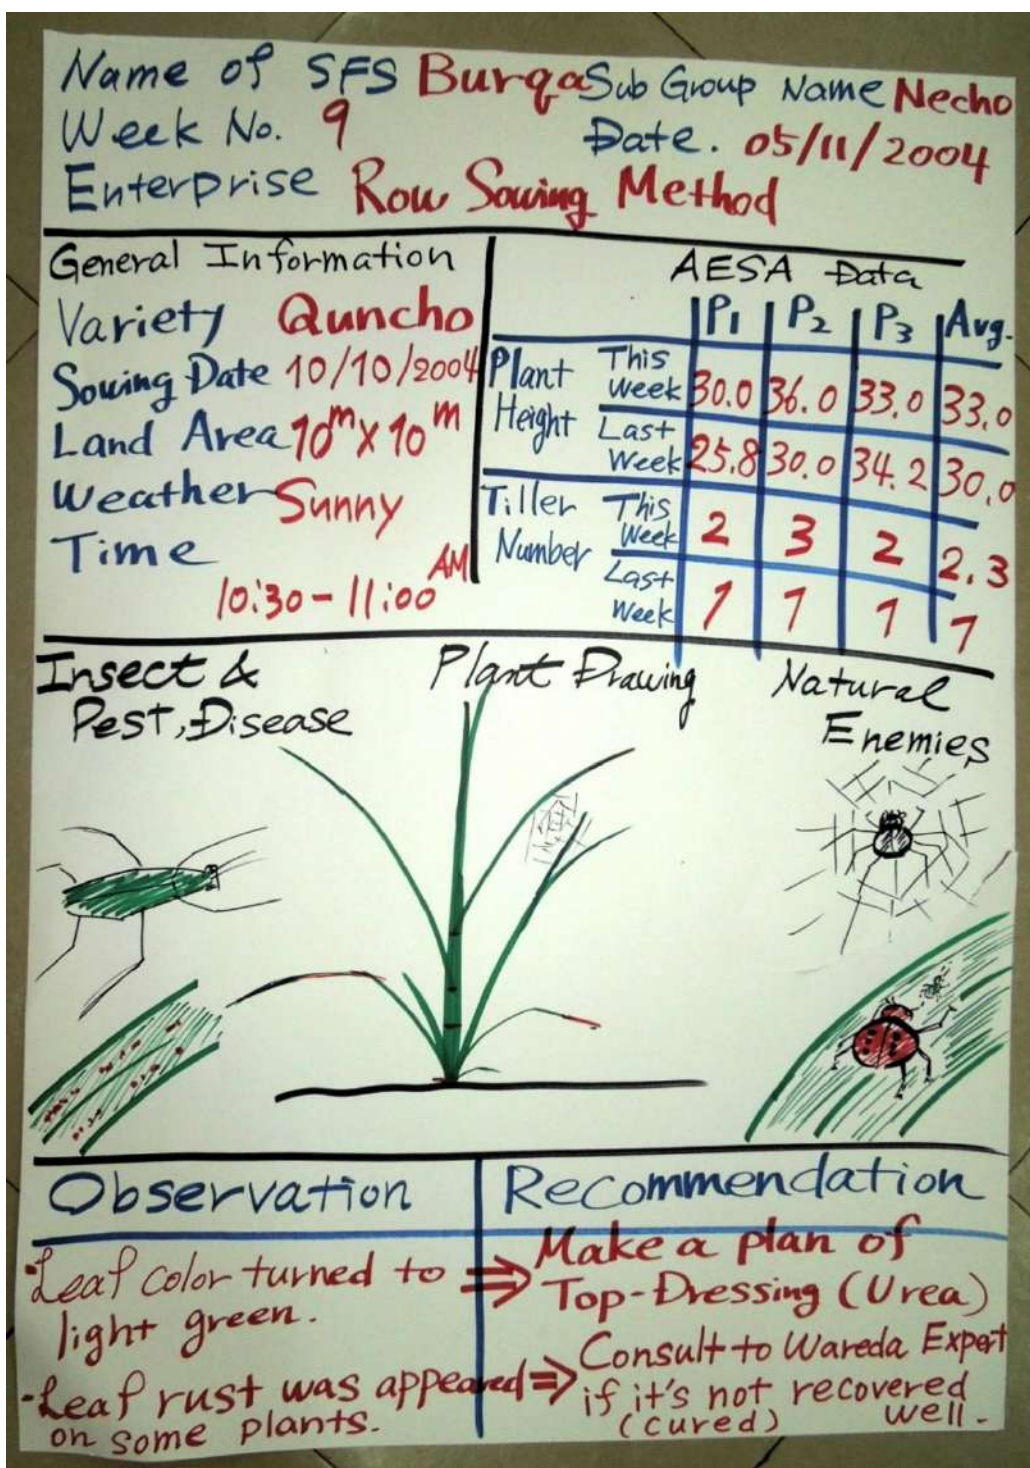 Name of SFS Burqa Sub Group Name Necho
Week No. 9 Date. 05/11/2004
Enterprise Row Sowing Method
General Information
Variety Quncho
Sowing Date 10/10/2004
Land Area 10m x 10m
Weather Sunny
Time
10:30 - 11:00 AM
AESA Data
P1 P2 P3 Avg.
Plant Height This Week 30.0 36.0 33.0 33.0
Last Week 25.8 30.0 34.2 30.0
Tiller Number This Week 2 3 2 2.3
Last Week 1 1 1 1
Insect & Pest, Disease
Plant Drawing
Natural Enemies
Observation
·Leaf color turned to
light green.
-Leaf rust was appeared
on some plants.
Recommendation
⇒ Make a plan of
Top-Dressing (Urea)
⇒ Consult to Wareda Expert
if it's not recovered
(cured) well.